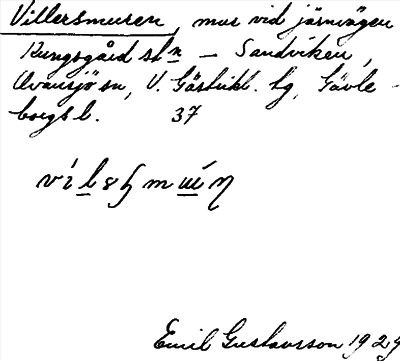 Villersmuren, mur vid järnvägen
Kungsgård stn — Sandviken,
Ovansjö sn, V. Gästrikl. tg, Gävle-
borgs l. 37
Emil Gustavsson 1929